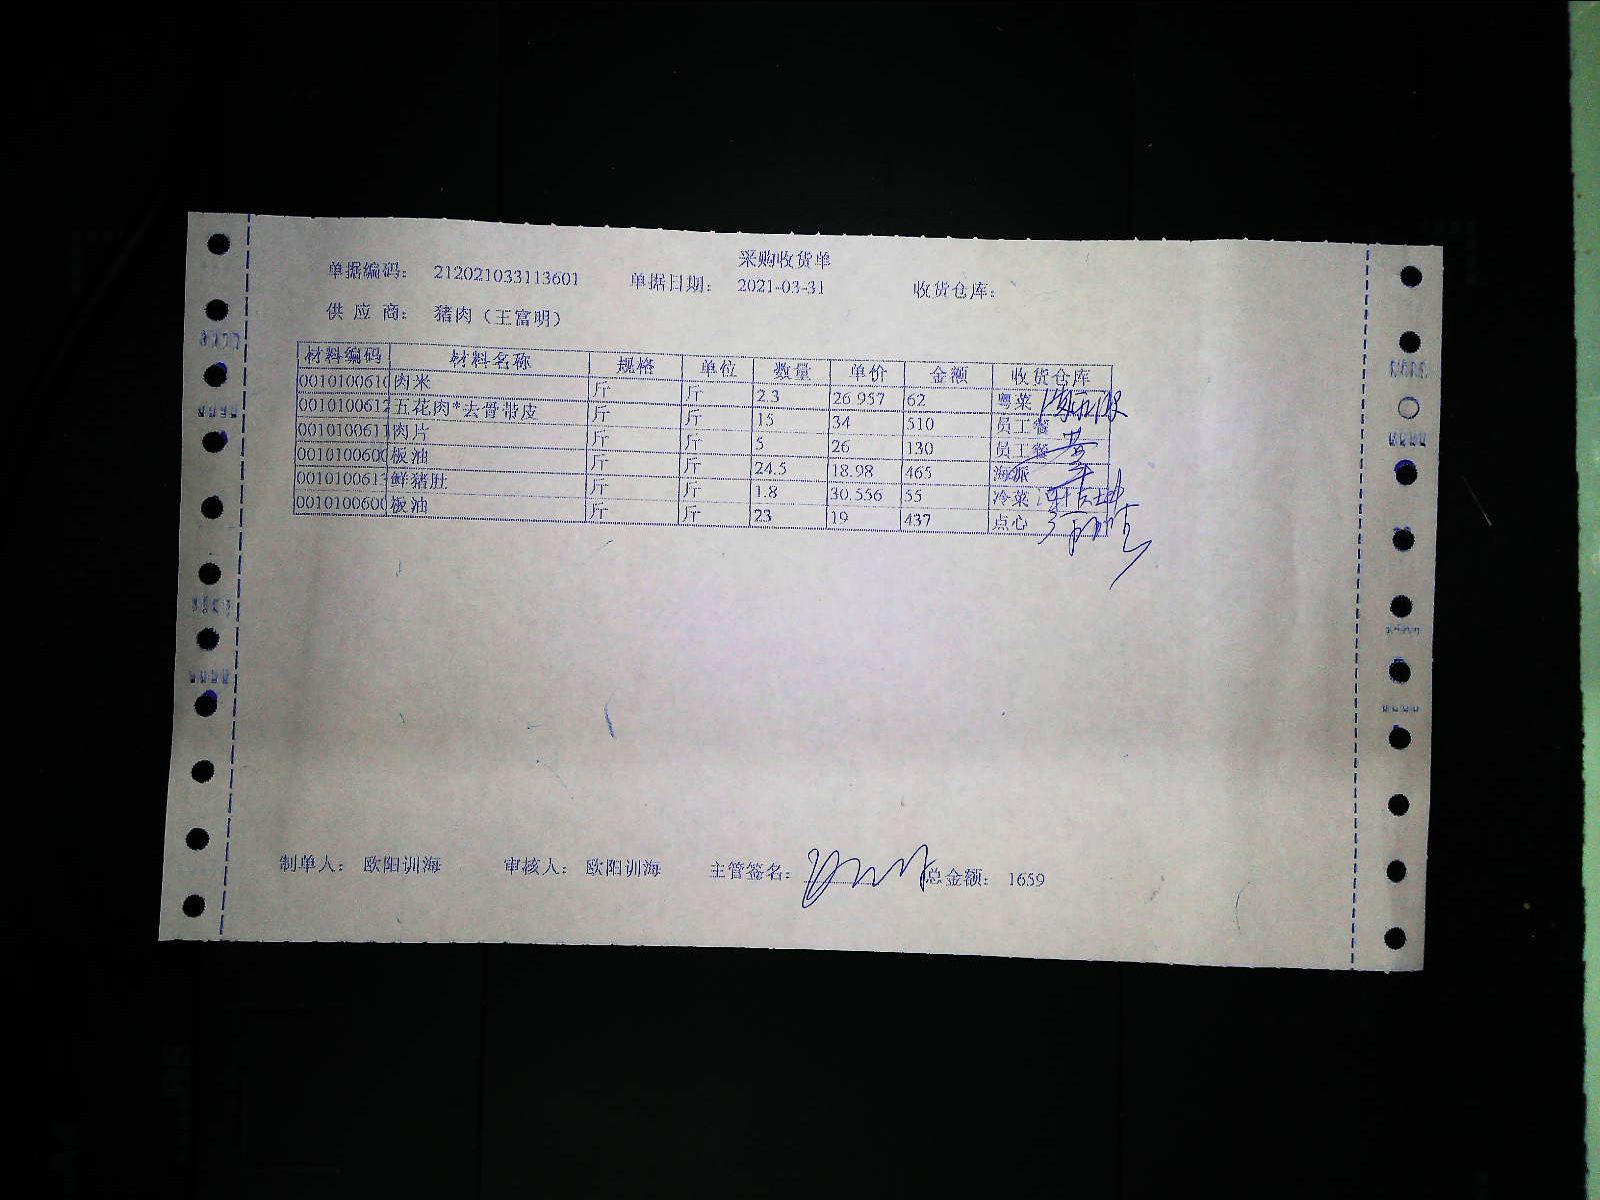 采购收货单
单据编码： 212021033113601 单据日期： 2021-03-31 收货仓库：
供 应 商： 猪肉（王富明）
材料编码 材料名称 规格 单位 数量 单价 金额 收货仓库
0010100610 肉米 斤 斤 2.3 26.957 62 粤菜
0010100612 五花肉*去骨带皮 斤 斤 15 34 510 员工餐
0010100611 肉片 斤 斤 5 26 130 员工餐
0010100600 板油 斤 斤 24.5 18.98 465 海派
0010100613 鲜猪肚 斤 斤 1.8 30.556 55 冷菜
0010100600 板油 斤 斤 23 19 437 点心
制单人： 欧阳训海 审核人： 欧阳训海 主管签名： 总金额： 1659